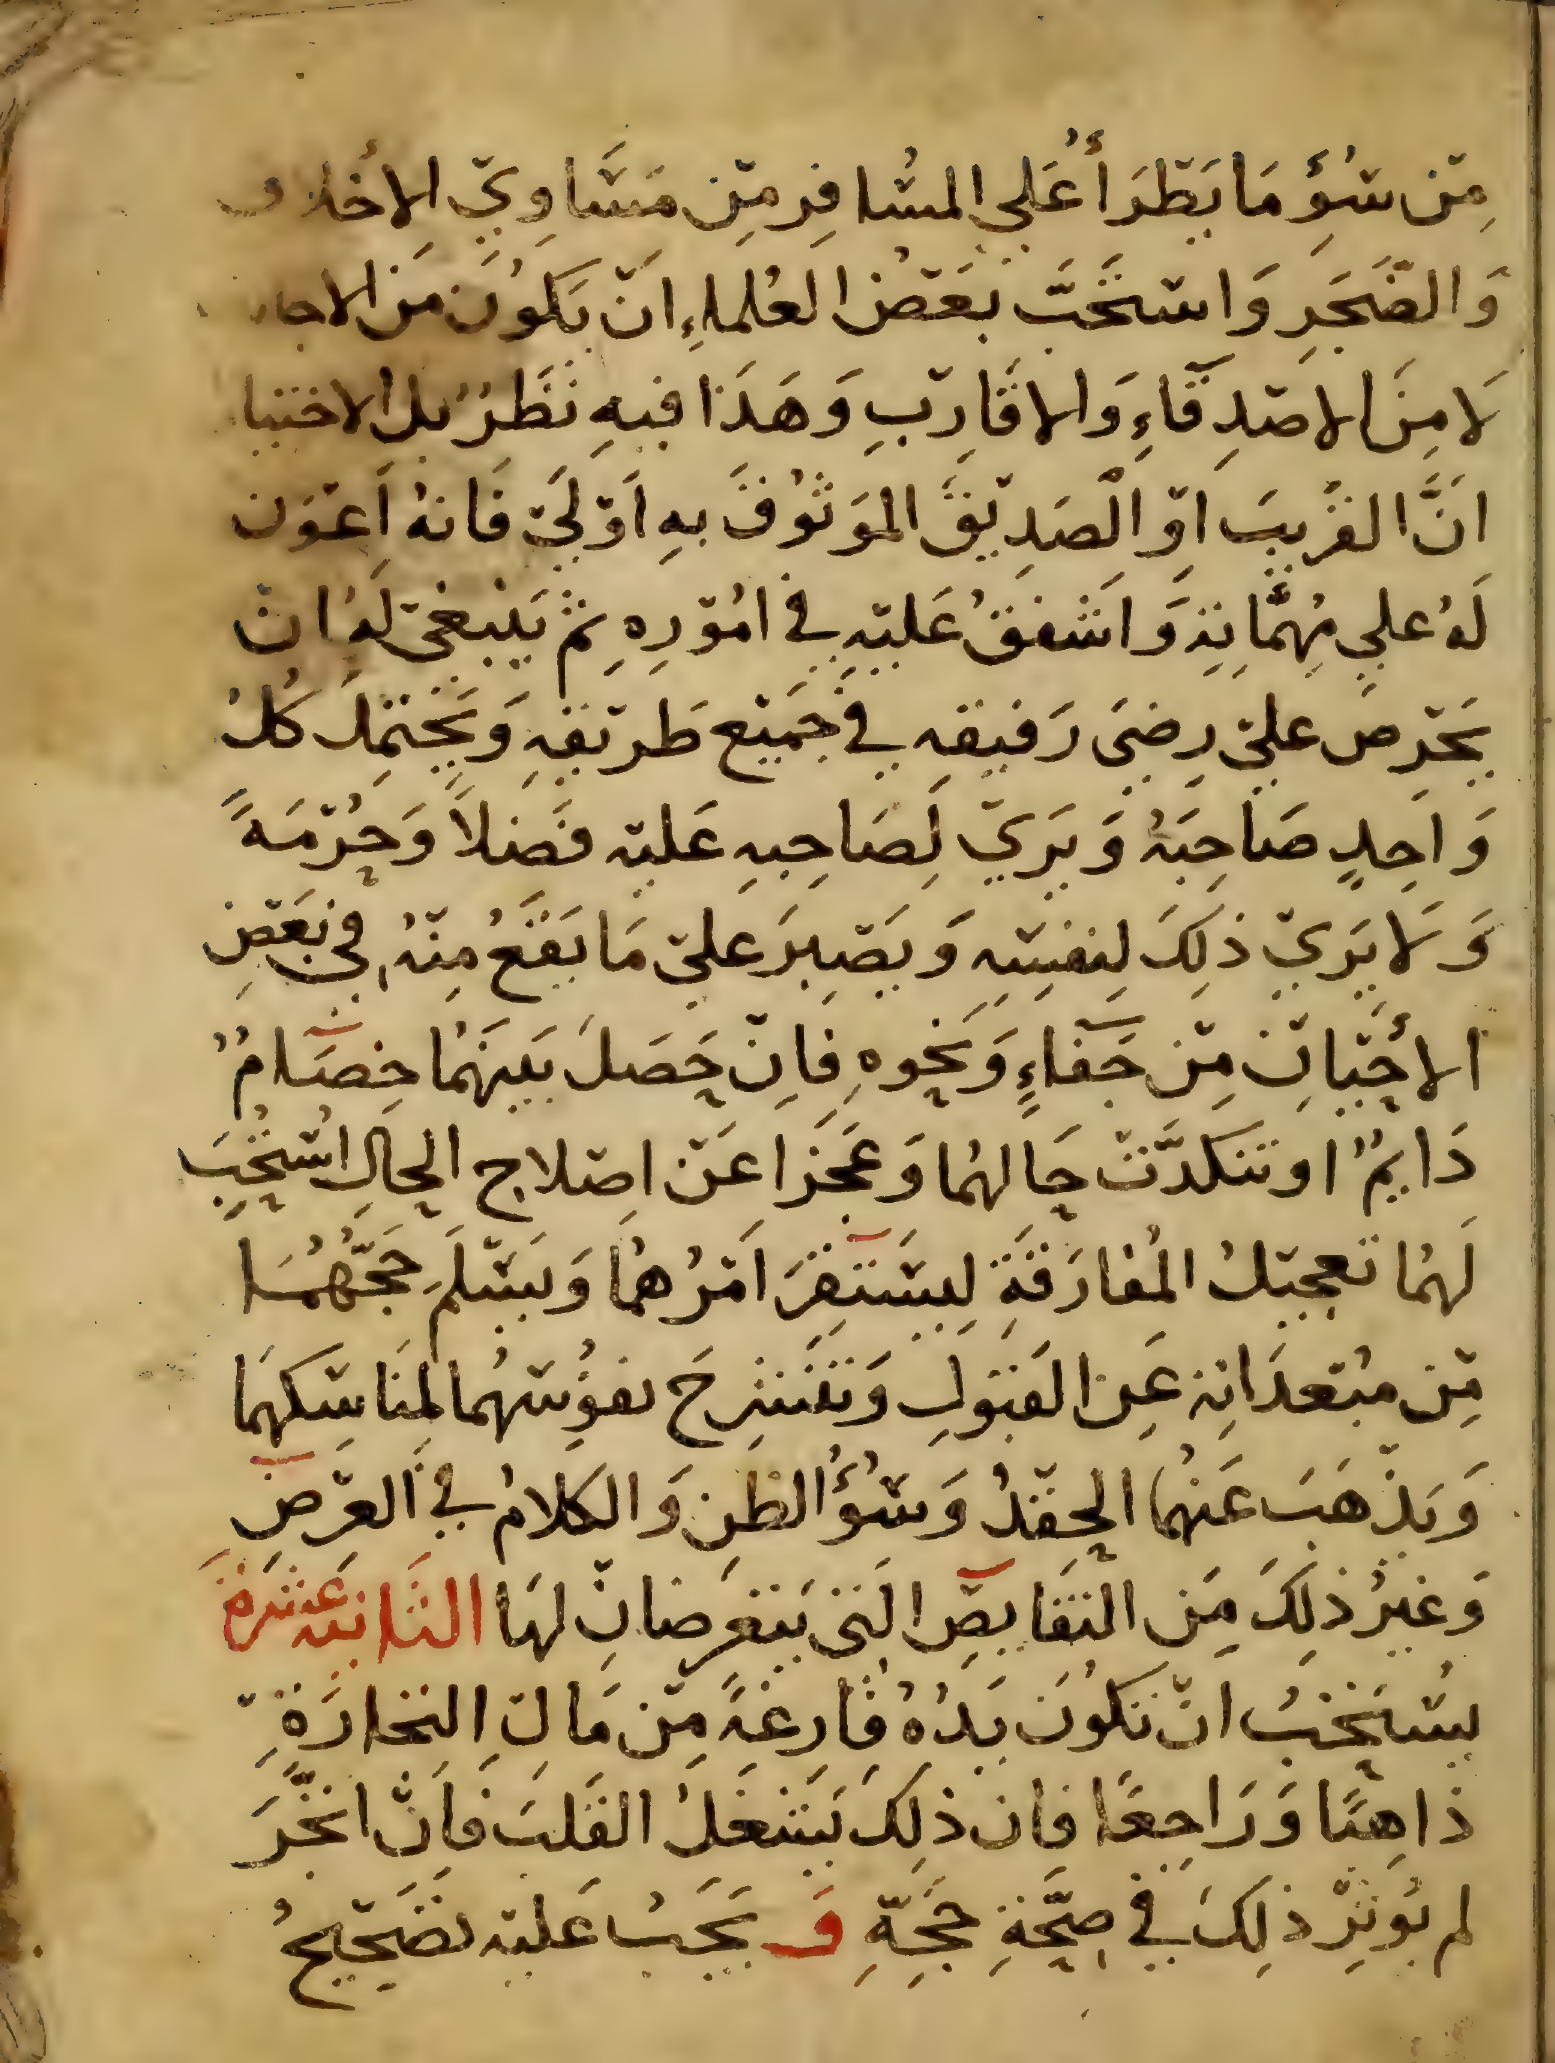 مِنْ سُؤِ مَا يَطْرَأُ عَلي المسُافِرِ مِنْ مَسَاوِيْ الاخلاق
وَالضَّجَرِ وَاسْتَحَبَّ بَعْضُ العُلماءِ انْ يَكوُنَ مَن الاجا
لَا مِنَ الاصْدِقَاءِ وَالاقَارِبِ وَهَذا فيهِ نَظَرٌ بل الاختيا
انَّ القَريبَ اوْ الْصَدِيْقَ الموَثوُقَ بهِ اَوْلَيْ فَانهُ اَعْوَن
لَهُ علي مُهِمَّاتِهِ وَاشَفَقُ عَليْهِ في امُوْرِهِ ثم يَنْبغيْ لَهُ ان
يَحْرِصَ عليْ رِضَى رَفيقهِ في جَميْع طَريْقهِ وَيَحْتمِلَ كُلُ
وَاحِدٍ صَاحِبَهُ وَيَرَيْ لِصَاحِبهِ عَليْه فَضلاً وَحُرْمَةً
وَلَا يَرَيْ ذلِكَ لِنفسْهِ وَيَصْبِرَ عليْ مَا يَقَعُ مِنْهُ في بَعْضِ
الأحْيَانِ مِنْ جَفَاءٍ وَنحوهِ فاِنْ حَصَلَ بَينَهُمَا خِصَامٌ
دَايمٌ اوتنكدَّتْ حَالهُما وَعَجَزا عَنْ اصْلاح الحَالِ اسْتُحِبَ
لَهُمَا تعجيْلُ المُفارَقَةِ لِيسَتَقِرَ امْرُهُما وَيسْلَمَ حَجُّهُمَا
مِنْ مبْعدَاتِه عَنِ القَبَوُلِ وَتَنْشَرِحَ نفوُسهُما لمنَاسِكهمَا
وَيذْهَبَ عَنهُما الحِقْدُ وَسُوُءُ الظنِ وَالكلامُ في العِرْضِ
وَغيرُ ذلِكَ مِن النقَايصِ الَتي يَتعَرضانِ لهَا الثَانيه عَشَرَة
يسُتَحَبُ انْ تكوُنَ يَدُهُ فَارغةً مِنْ مَالِ التجارَةِ
ذاهِبًا وَرَاجِعًا فان ذلِكَ يَشغَلُ القَلبَ فَاِنْ اتَّجَرَ
لم يُوَثِرْ ذلِكَ في صِحَّةِ حَجِّهِ وَ يَجَبُ عَليْه تصَحيْحُ